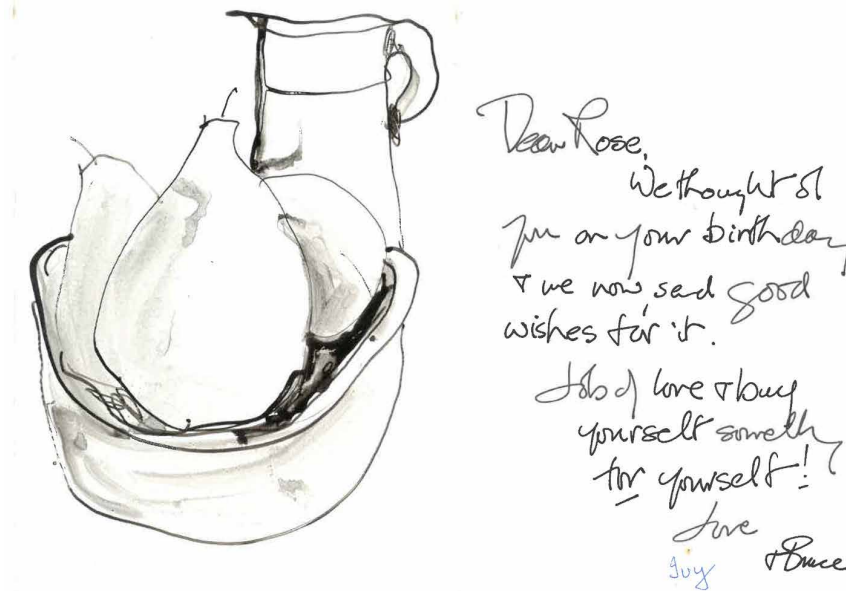 Dear Rose,
We thought of
you on your birthday
& we now, send good
wishes for it.
Lots of love & buy
yourself someth
for yourself!
Love
Ivy & Bruce